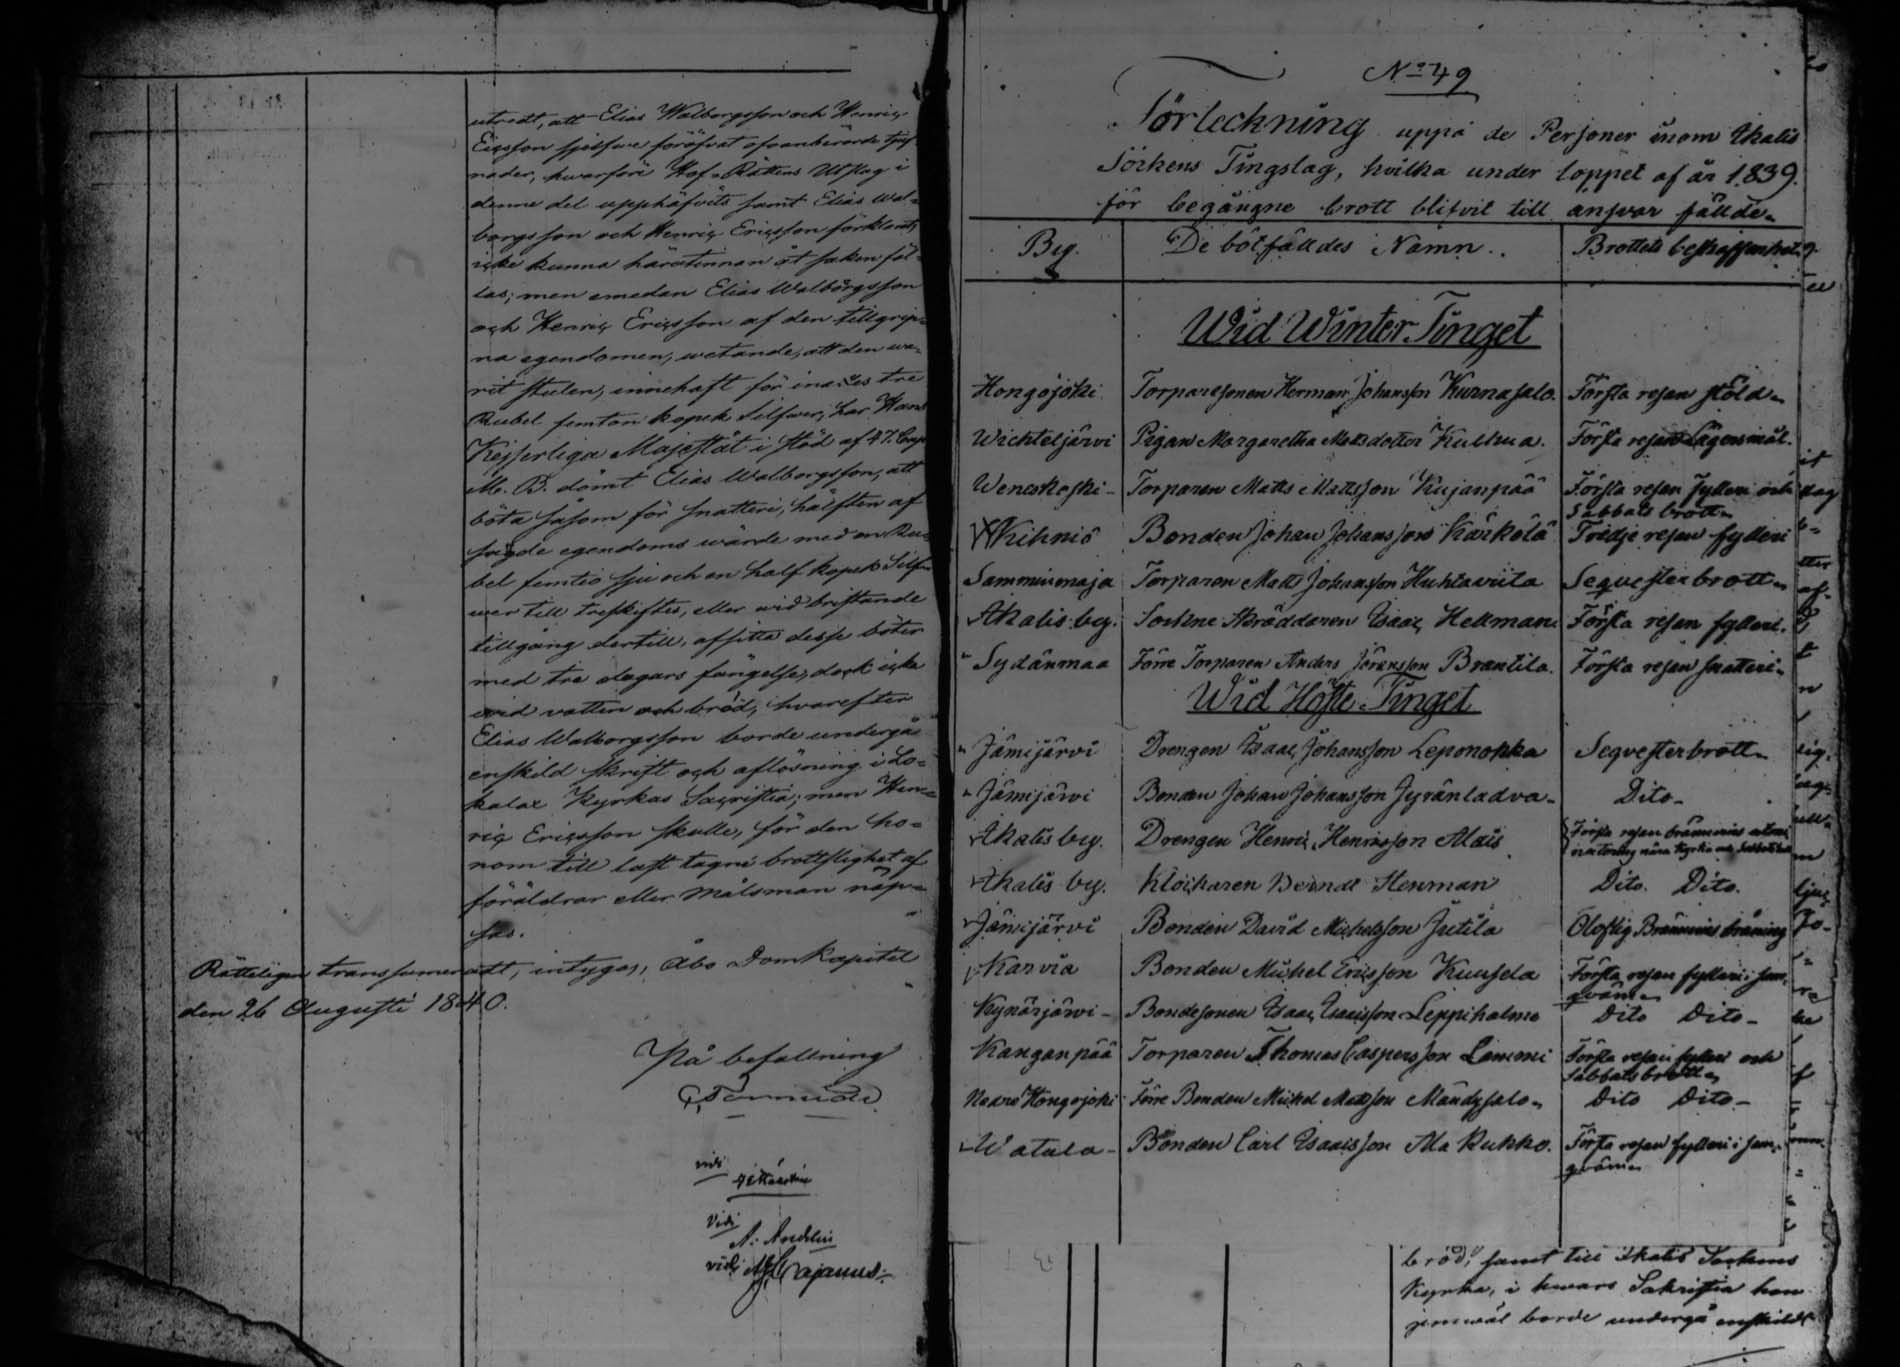 utredt, att Elias Walborgsson och Henric
Ericsson sjelfve föröfvat ofvanberörde tjuf-
nader, hvarföre Hof-Rättens Utslag i
denne del upphäfvits samt Elias Wal-
borgsson och Henric Ericsson förklarats
icke kunna härutinnan åt saken fäl-
las; men emedan Elias Walborgsson
och Henric Ericsson af den tillgrip-
na egendomen, wetande, att den wa-
rit stulen, innehaft för tre
Rubel femton kopek Silfwer, har Hans
Kejserliga Majestät i stöd af 47. Cap
M. B. dömt Elias Walborgsson, att
böta såsom för snatteri, hälften af
sagde egendoms wärde med en Ru-
bel femtio sju och en half kopek Silf-
wer till treskiftes, eller wid bristande
tillgång dertill, afsitta desse böter
med tre dagars fängelse, dock icke
wid vatten och bröd, hvarefter
Elias Walborgsson borde undergå
enskild skrift och aflösning i Lo-
kalax Kyrkas Sacristia; men Hen-
ric Ericsson skulle, för den ho-
nom till last tagne brottslighet af
föräldrar eller målsman näp-
sas.
Rätteligen transsumeradt, intygas, Åbo Domkapitel
den 26 Augusti 1840.
På befallning
vidi
Vidi
A. Andelin
vidi Cajanus
No 49
Förteckning uppå de Personer inom Ikalis
Sockens Tingslag, hvilka under loppet af år 1839.
för begångne brott blifvit till ansvar fällde.
By. De bötfälldes Namn. Brottets beskaffenhet
Wid Winter Tinget
Hongojoki Torparesonen Herman Johansson Kurnasalo. Första resan stöld
Wichteljärvi Pigan Margaretha Mattsdotter Kullua. Första resan Lägersmål.
Weneskoski Torparen Matts Mattsson Kujanpää Första resan fylleri och
Sabbats brott
Kihniö Bonden Johan Johansson Kärkölä Tredje resan fylleri
Samminmaja Torparen Matts Johansson Huhtaviita Seqvesterbrott
Ikalis by. Sockne Skräddaren Isaac Hellman Första resan fylleri.
Sydänmaa Förre Torparen Anders Jöransson Brantila. Första resan snatteri
Wid Höste Tinget
Jämijärvi Drengen Isaac Johansson Leponokka Seqvesterbrott
Jämijärvi Bonden Johan Johansson Jyränladva Dito
Ikalis by. Drengen Henric Henricsson Alais Första resan
nära Kyrka och
Ikalis by. Klockaren Berndt Henman Dito. Dito.
Jämijärvi Bonden David Michelsson Jutila Oloflig Brännvins bränning
Karvia Bonden Michel Ericsson Kuusela Första resan fylleri i sam-
qväm
Kyrösjärvi Bondesonen Isaac Isaacsson Leppihalme Dito Dito
Kanganpää Torparen Thomas Caspersson Lammi Första resan fylleri och
Sabbatsbrott
Nedre Hongojoki Förre Bonden Michel Mattsson Mändysalo Dito Dito
Watula Bonden Carl Isaacsson Ala Rukko. Första resan fylleri i sam-
qväm
bröd, samt till Ikalis Sockens
Kyrka, i hwars Sakristia han
jemwäl borde undergå enskild